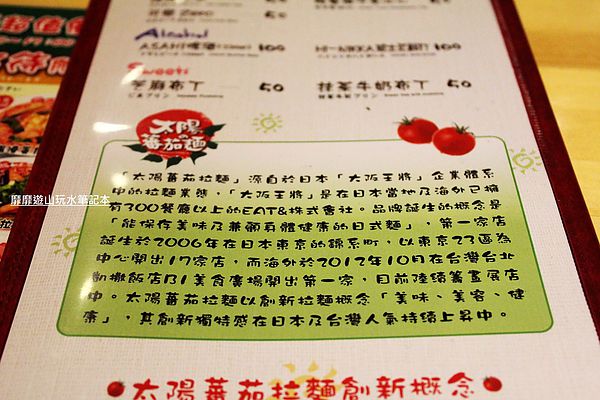 Alcohol
ASAHI啤酒
100
100
Sweets
芝麻布丁 50
抹茶牛奶布丁 50
太陽
の
蕃茄麵
「太陽蕃茄拉麵」源自於日本「大阪王將」企業體系
中的拉麵業態，「大阪王將」是在日本當地及海外已擁
有300餐廳以上的EAT&株式會社。品牌誕生的概念是
「能保存美味及兼顧身體健康的日式麵」，第一家店
誕生於2006年在日本東京的錦糸町，以東京23區為
中心開出17家店，而海外於2012年10月在台灣台北
凱撒飯店B1美食廣場開出第一家，目前陸續籌畫展店
中。太陽蕃茄拉麵以創新拉麵概念「美味、美容、健
康」，其創新獨特感在日本及台灣人氣持續上昇中。
太陽蕃茄拉麵創新概念
靡靡遊山玩水筆記本